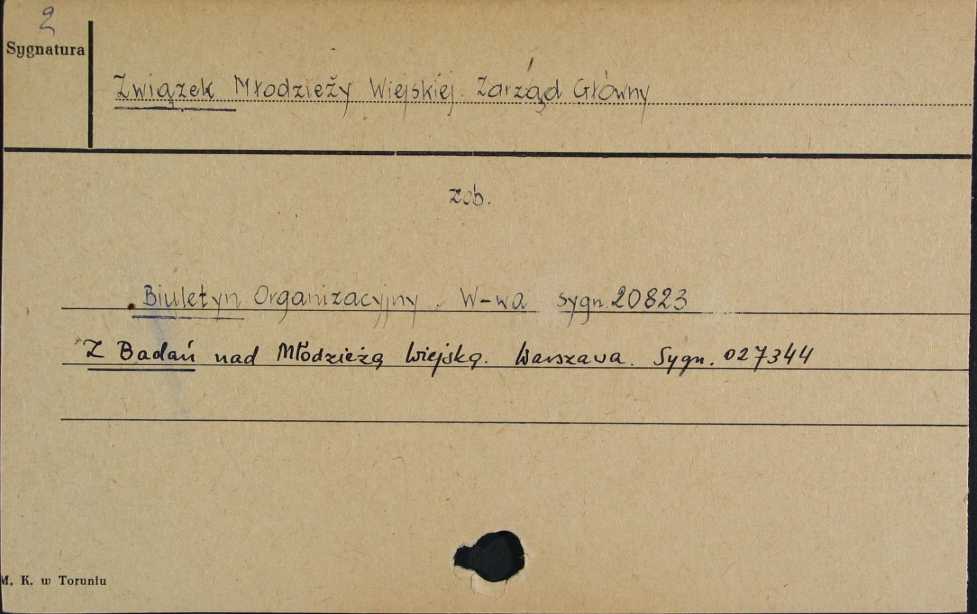 2
Sygnatura
Związek Młodzieży Wiejskiej. Zarząd Główny
zob.
Biuletyn Organizacyjny. W-wa sygn. 20823
Z Badań nad Młodzieżą Wiejską. Warszawa. Sygn. 027344
M. K. w Toruniu